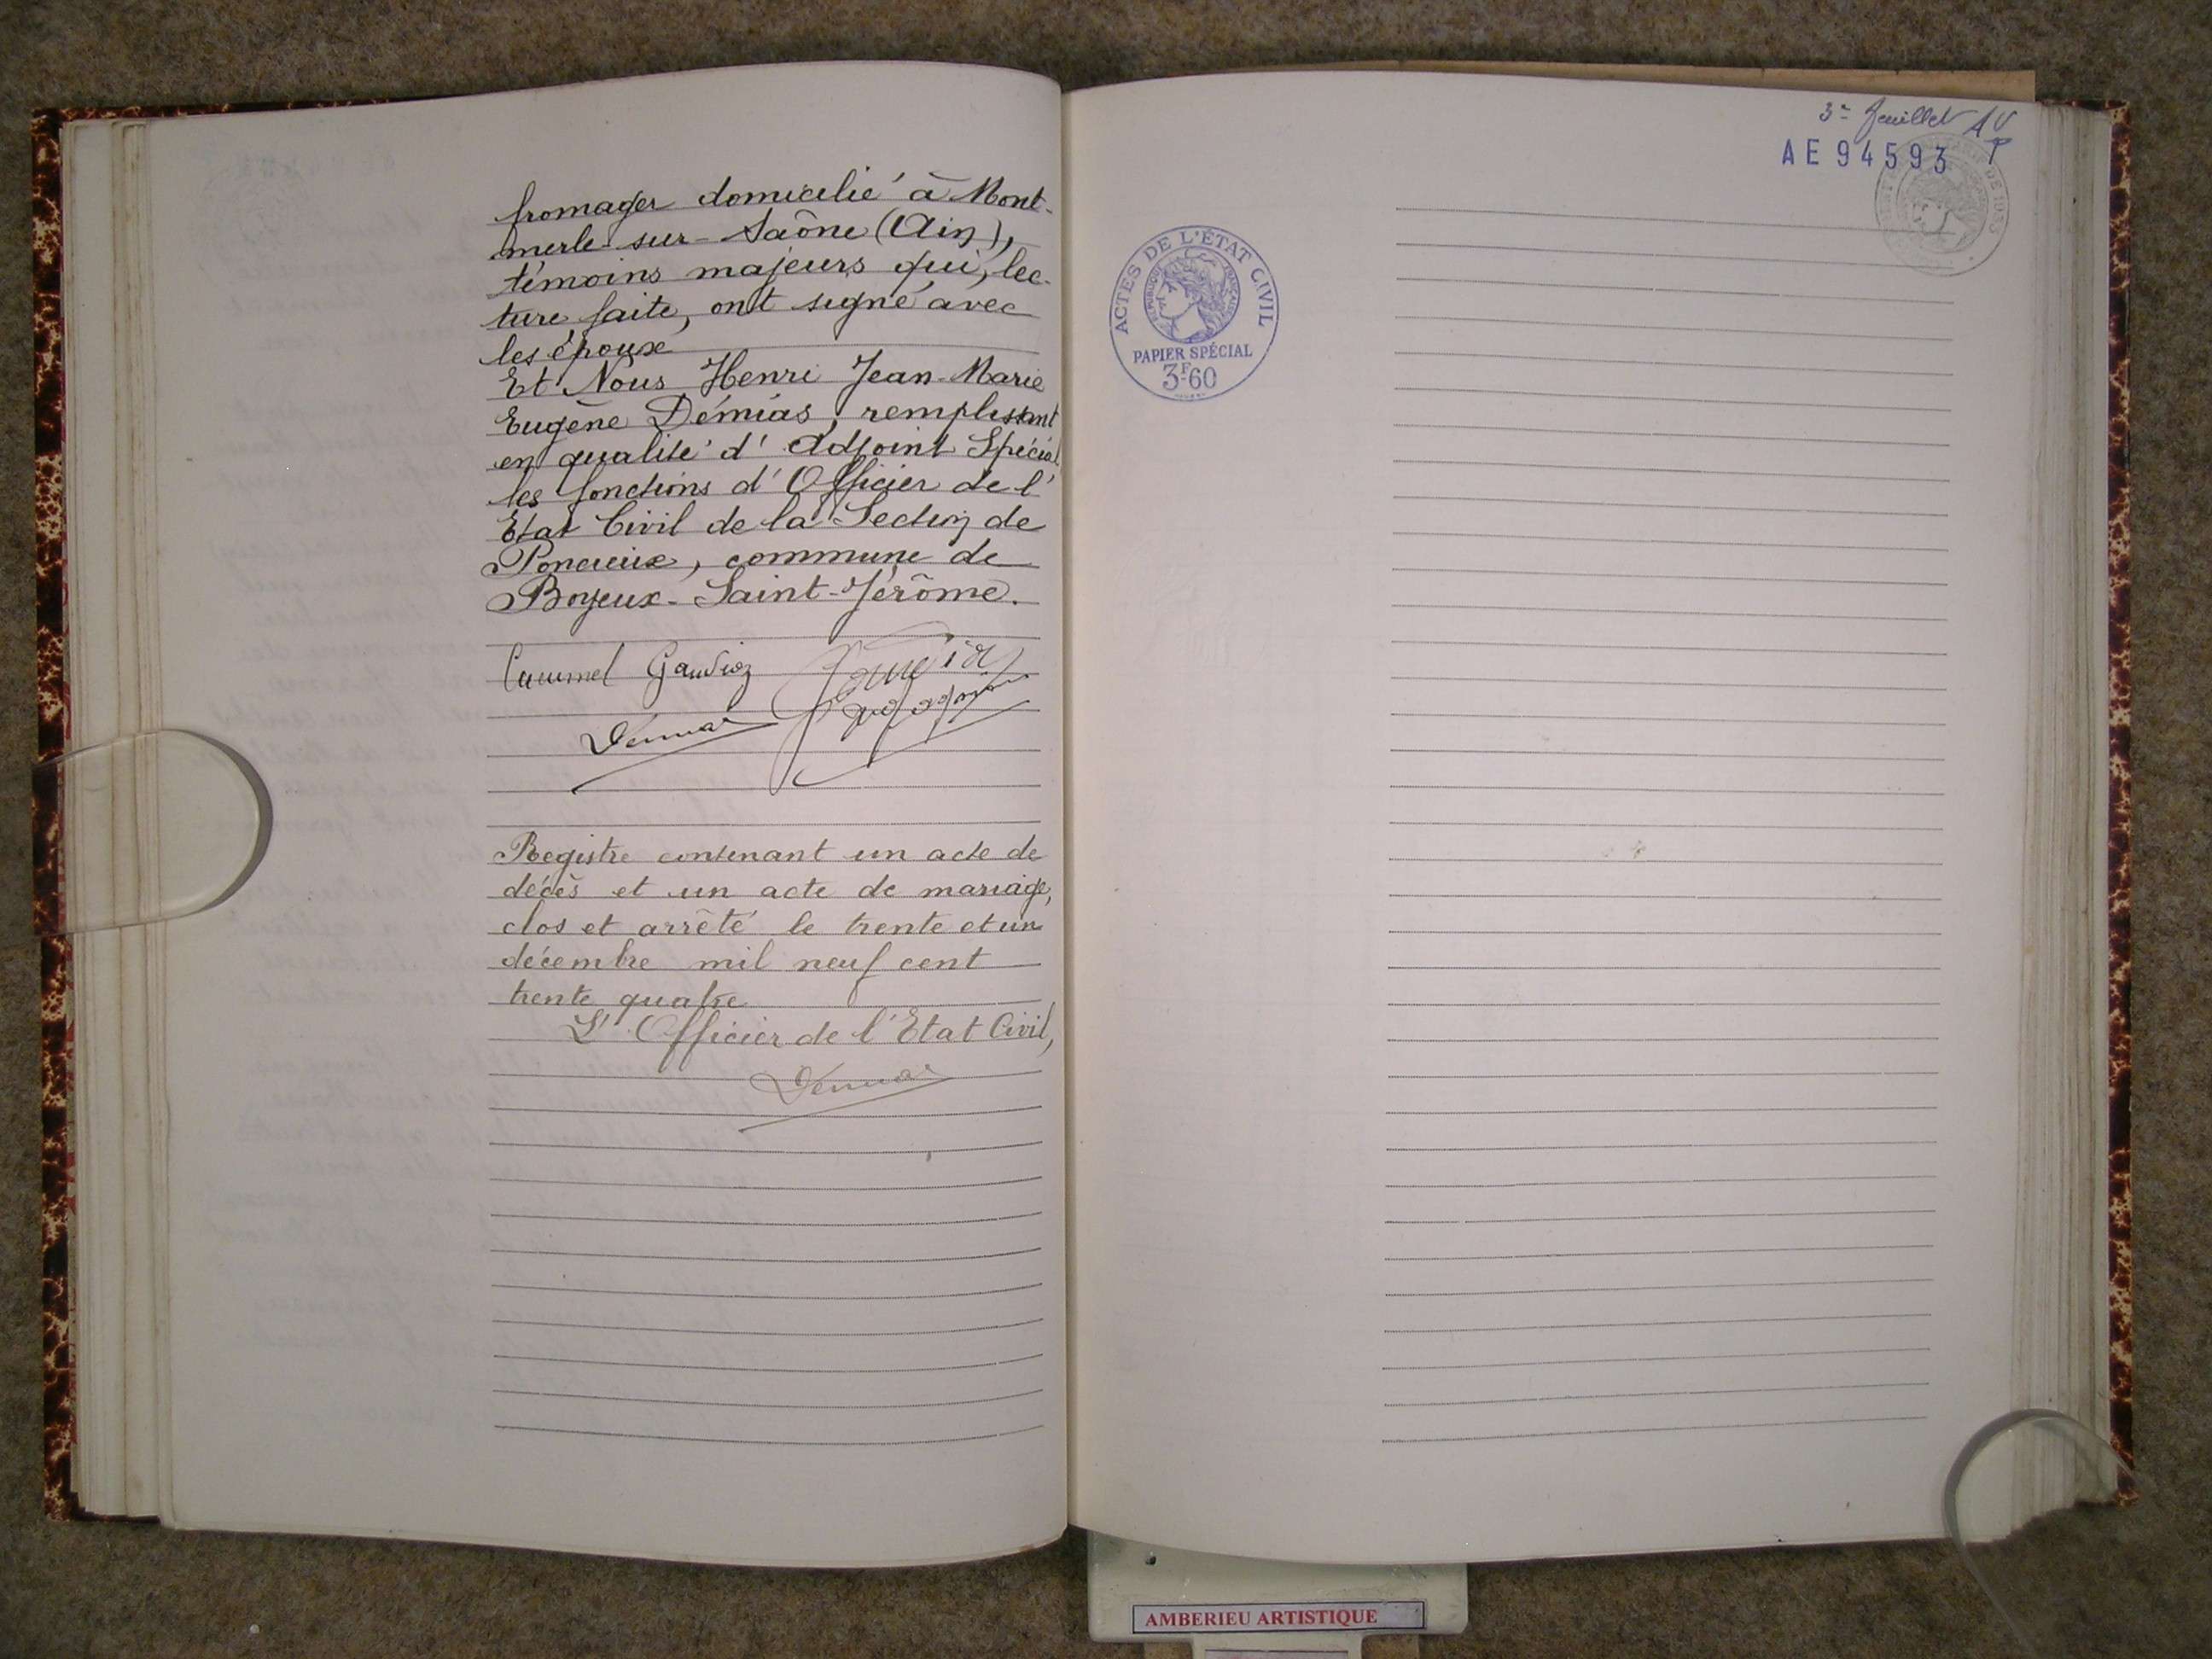 fromager domicilié à Mont-
merle-sur-Saône (Ain),
témoins majeurs qui, lec-
ture faite, ont signé avec
les époux
Et Nous Henri Jean-Marie
Eugène Démias, remplissant
en qualité d'Adjoint Spécial
les fonctions d'Officier de l'
Etat Civil de la Section de
Poncieux, commune de
Boyeux-Saint-Jérôme.
Gaudioz
Démias
Registre contenant un acte de
décès et un acte de mariage,
clos et arrêté le trente et un
décembre mil neuf cent
trente quatre
L'Officier de l'Etat Civil,
Démias
3e feuillet
AE 94593
ACTES DE L'ÉTAT CIVIL
RÉPUBLIQUE FRANÇAISE
PAPIER SPÉCIAL
3F60
AMBERIEU ARTISTIQUE